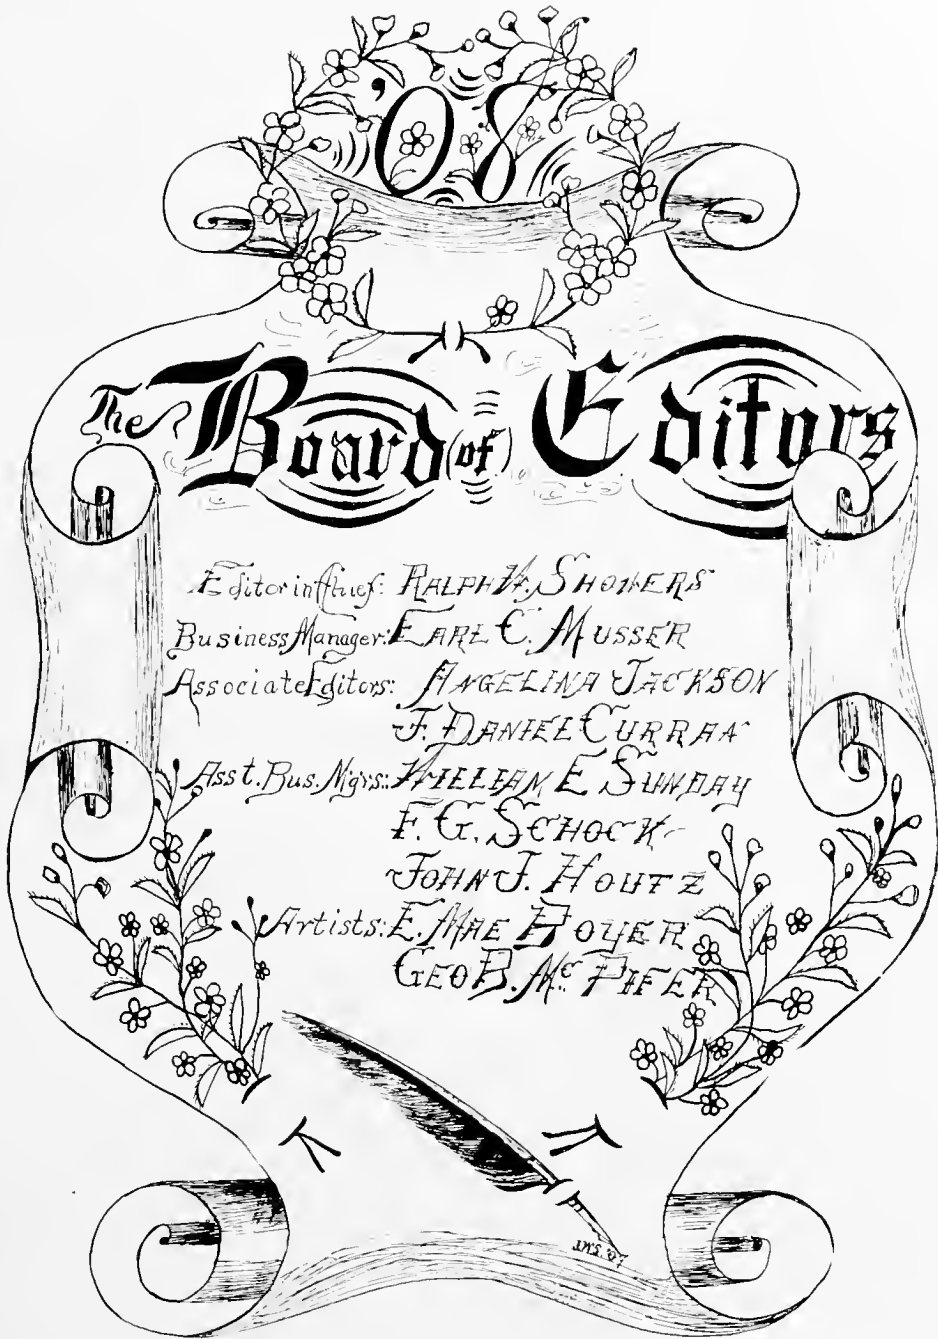 '08
The Board (of) Editors
Editor in Chief: RALPH W. SHOWERS
Business Manager: EARL C. MUSSER
Associate Editors: ANGELINA JACKSON
J. DANIEL CURRAN
Asst. Bus. Mgrs.: WILLIAM E SUNDAY
F. G. SCHOCK
JOHN J. HOUTZ
Artists: E. MAE BOYER
GEO B. Mc PIFER
J.W.S. '07